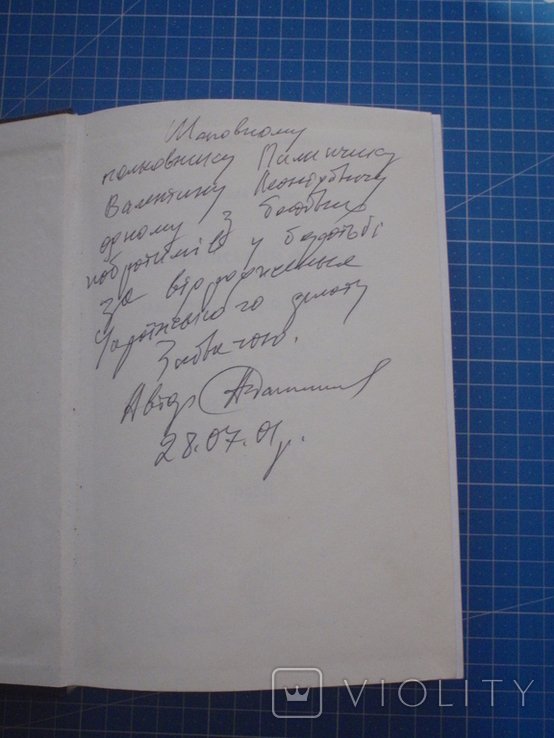 Шановному
полковнику Пилипчику
Валентину Леонтійовичу
одному з бойових
побратимів у боротьбі
за відродження
Українського
З повагою.
Автор
28.07.01р.
VIOLITY